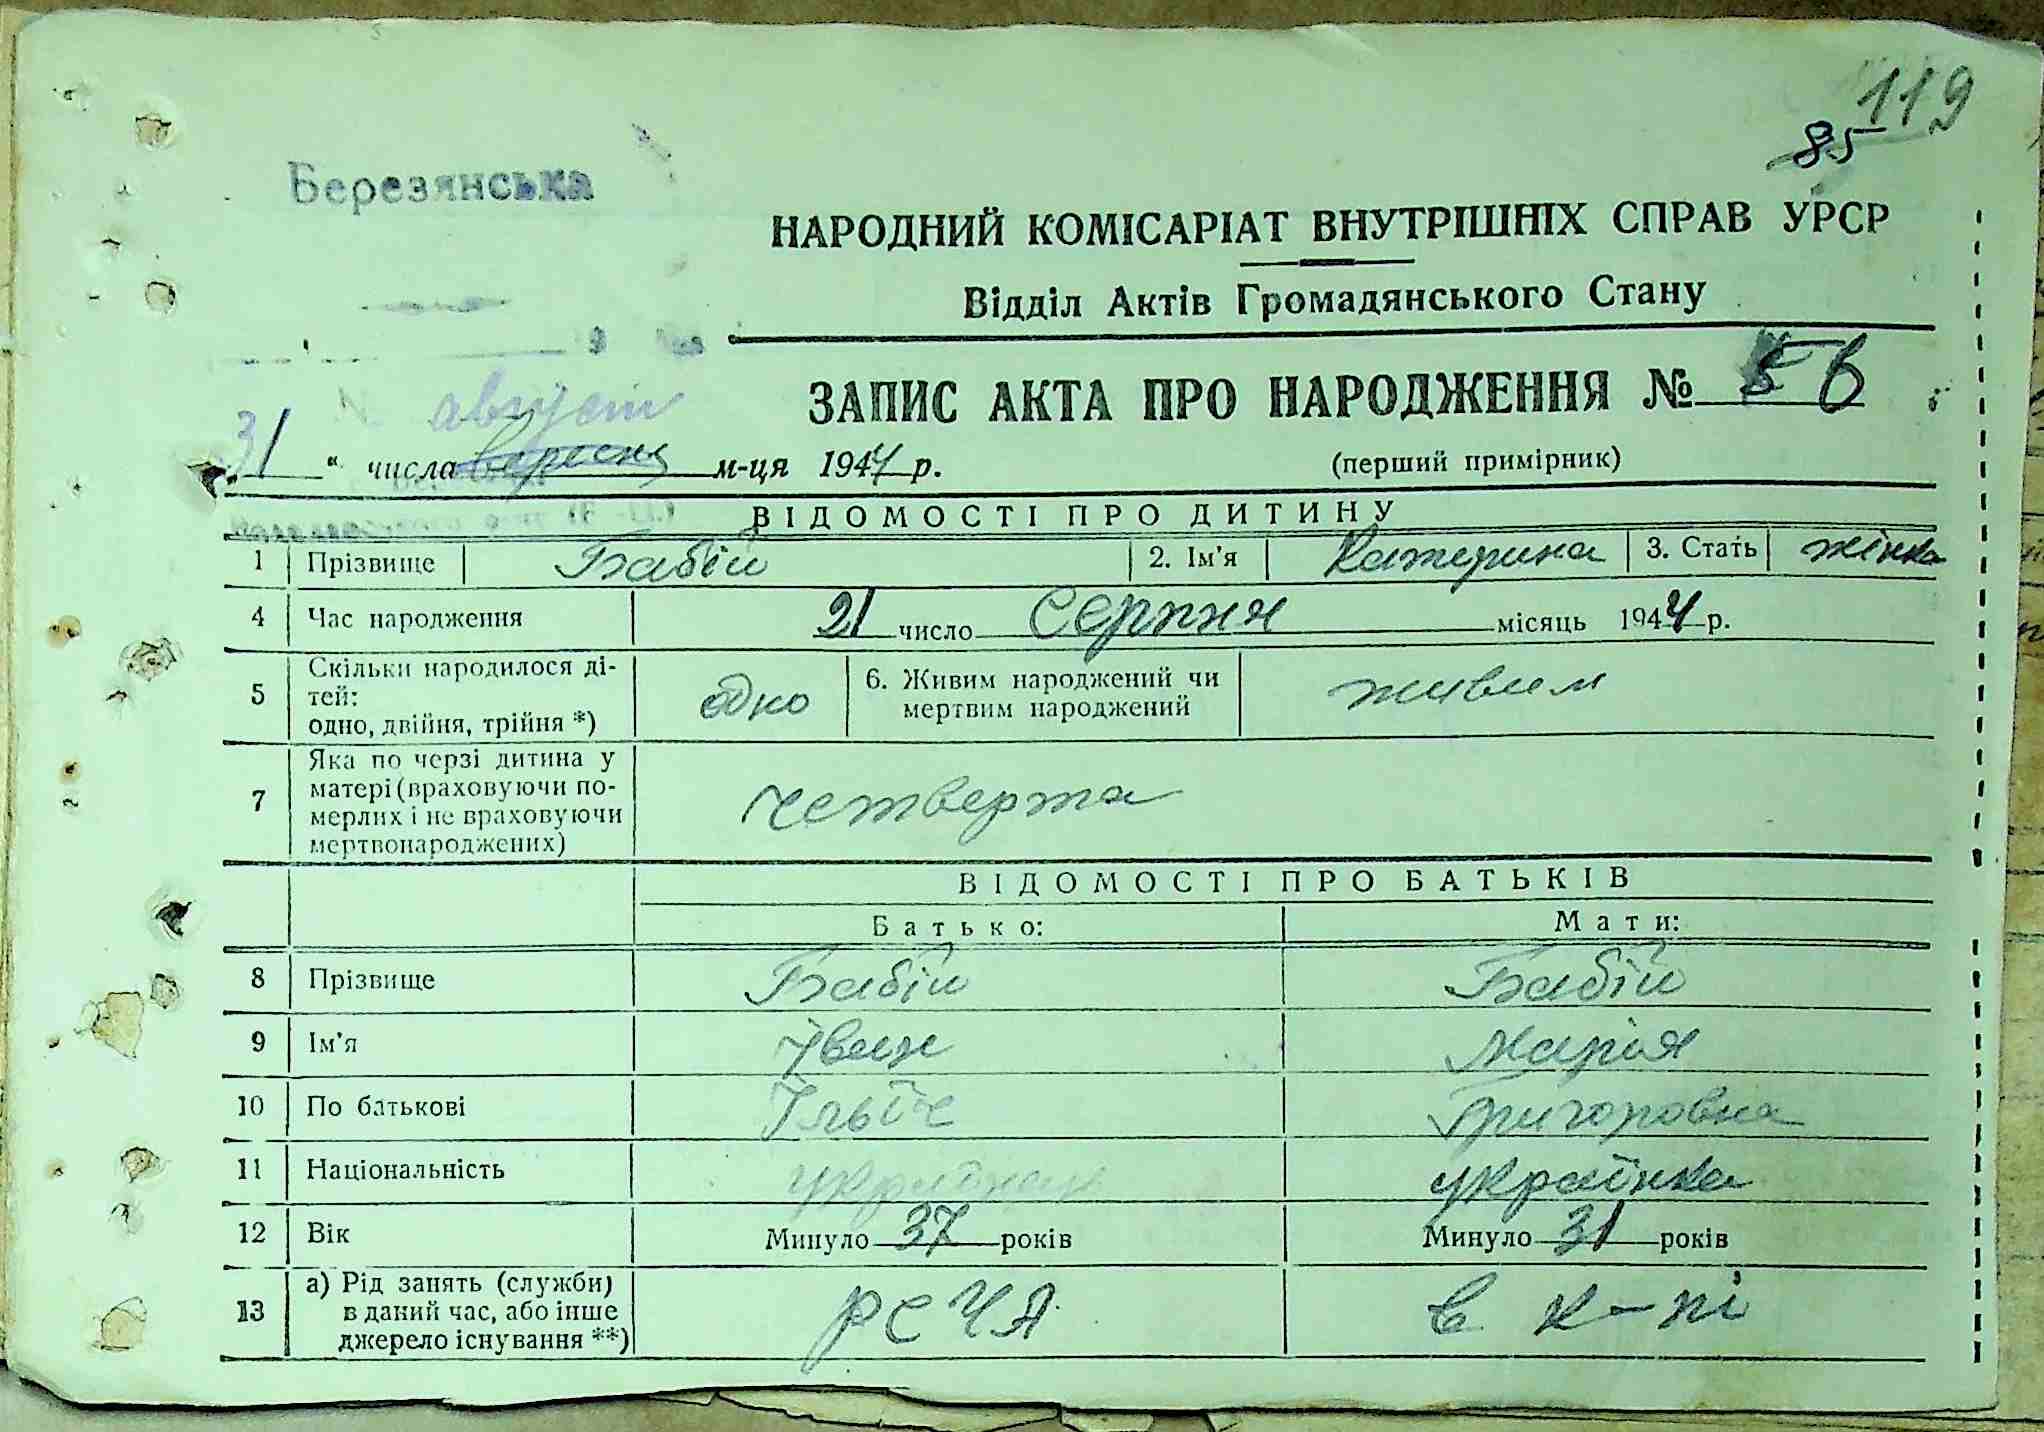 119
85
Березянська
НАРОДНИЙ КОМІСАРІАТ ВНУТРІШНІХ СПРАВ УРСР
Відділ Актів Громадянського Стану
ЗАПИС АКТА ПРО НАРОДЖЕННЯ №
август
31 " числа вересня м-ця 1944 р.
(перший примірник)
ВІДОМОСТІ ПРО ДИТИНУ
1 Прізвище Бабій 2. Ім'я Катерина 3. Стать жінка
4 Час народження 21 число Серпня місяць 1944 р.
5 Скільки народилося ді-
тей:
одно, двійня, трійня *) одно 6. Живим народжений чи
мертвим народжений живим
7 Яка по черзі дитина у
матері (враховуючи по-
мерлих і не враховуючи
мертвонароджених) четверта
ВІДОМОСТІ ПРО БАТЬКІВ
Батько: Мати:
8 Прізвище Бабій Бабій
9 Ім'я Іван Марія
10 По батькові Ільїч Григоровна
11 Національність українец українка
12 Вік Минуло 37 років Минуло 31 років
13 а) Рід занять (служби)
в даний час, або інше
джерело існування **) РСЧА в к-пі